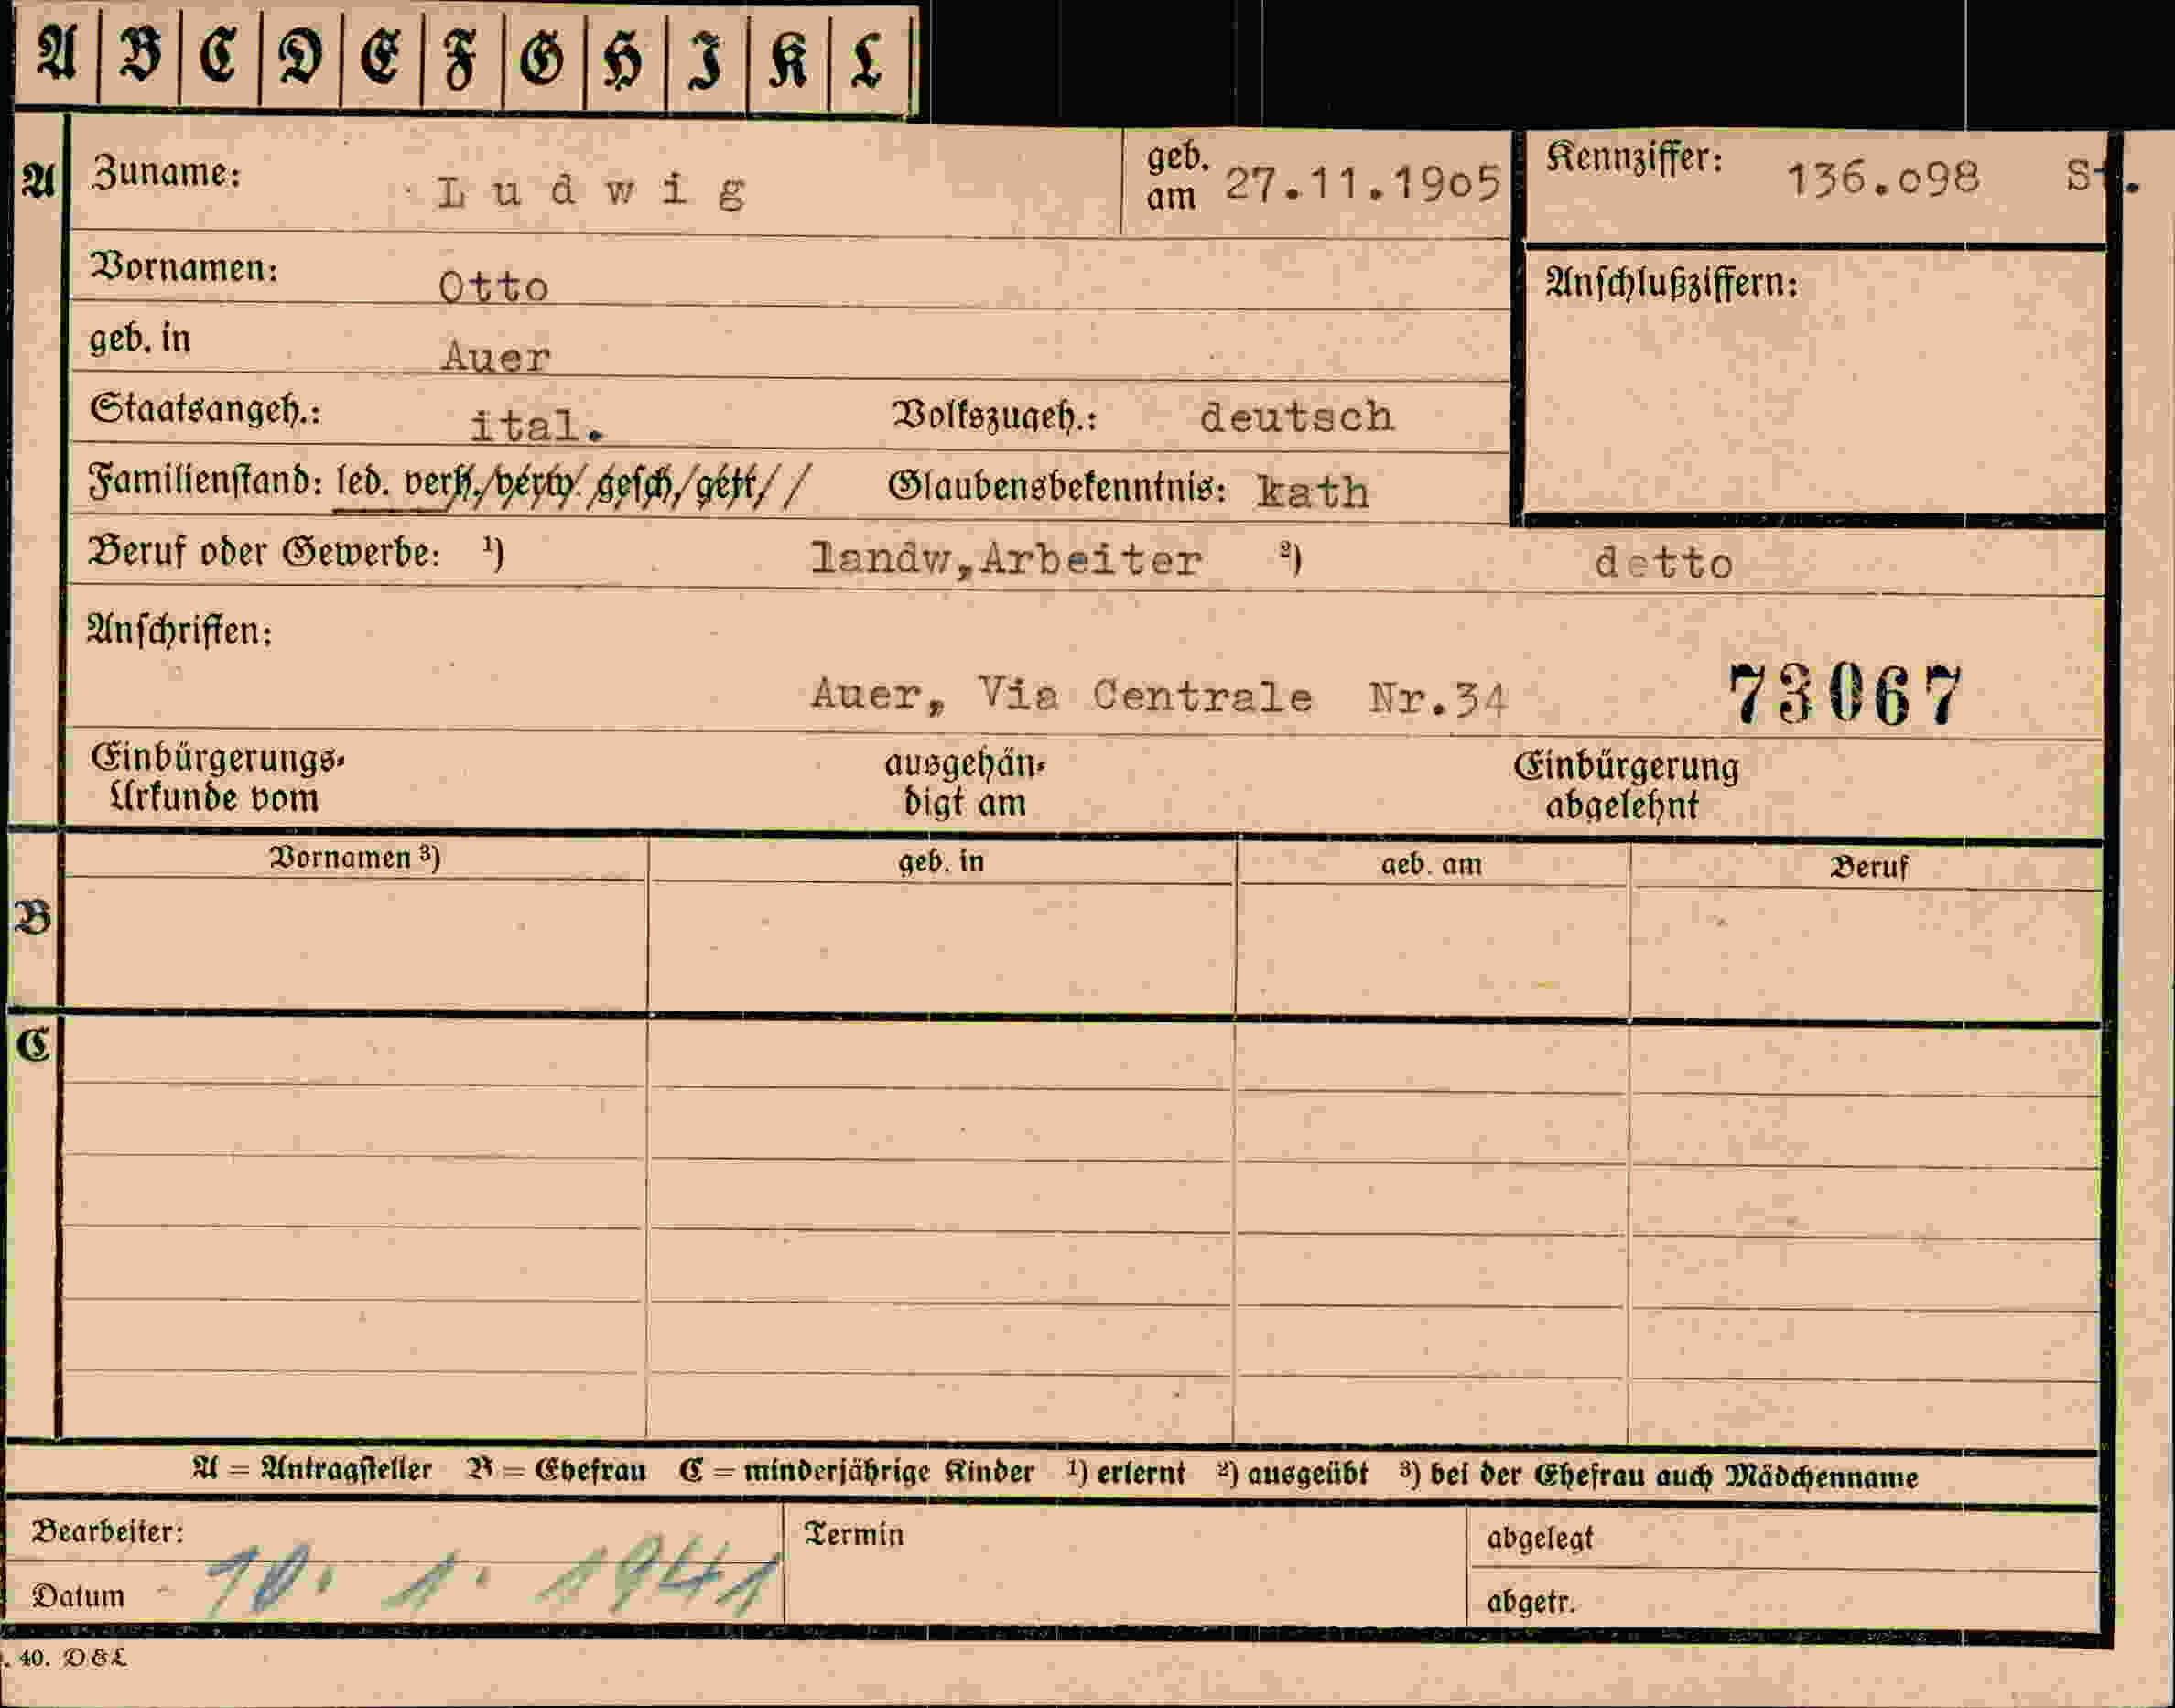 A B C D E F G H I K L
A Zuname: Ludwig geb. am 27.11.1905 Kennziffer: 136.098 St.
Vornamen: Otto Anschlußziffern:
geb. in Auer
Staatsangeh.: ital. Volkszugeh.: deutsch
Familienstand: led. verh. verw. gesch. getr. Glaubensbekenntnis: kath
Beruf oder Gewerbe: ¹) landw,Arbeiter ²) detto
Anschriften:
Auer, Via Centrale Nr.34 73067
Einbürgerungs- ausgehän- Einbürgerung
Urkunde vom digt am abgelehnt
Vornamen ³) geb. in geb. am Beruf
B
C
A = Antragsteller B = Ehefrau C = minderjährige Kinder ¹) erlernt ²) ausgeübt ³) bei der Ehefrau auch Mädchenname
Bearbeiter: Termin abgelegt
Datum 10. 1. 1941 abgetr.
. 40. D&L